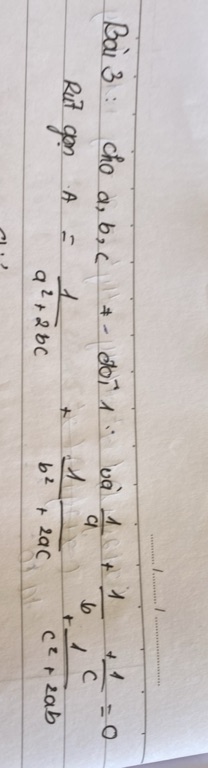 Bài 3 : Cho a, b, c ≠ - đôi 1 : và 1/a + 1/b + 1/c = 0
Rút gọn A = 1/(a² + 2bc) + 1/(b² + 2ac) + 1/(c² + 2ab)